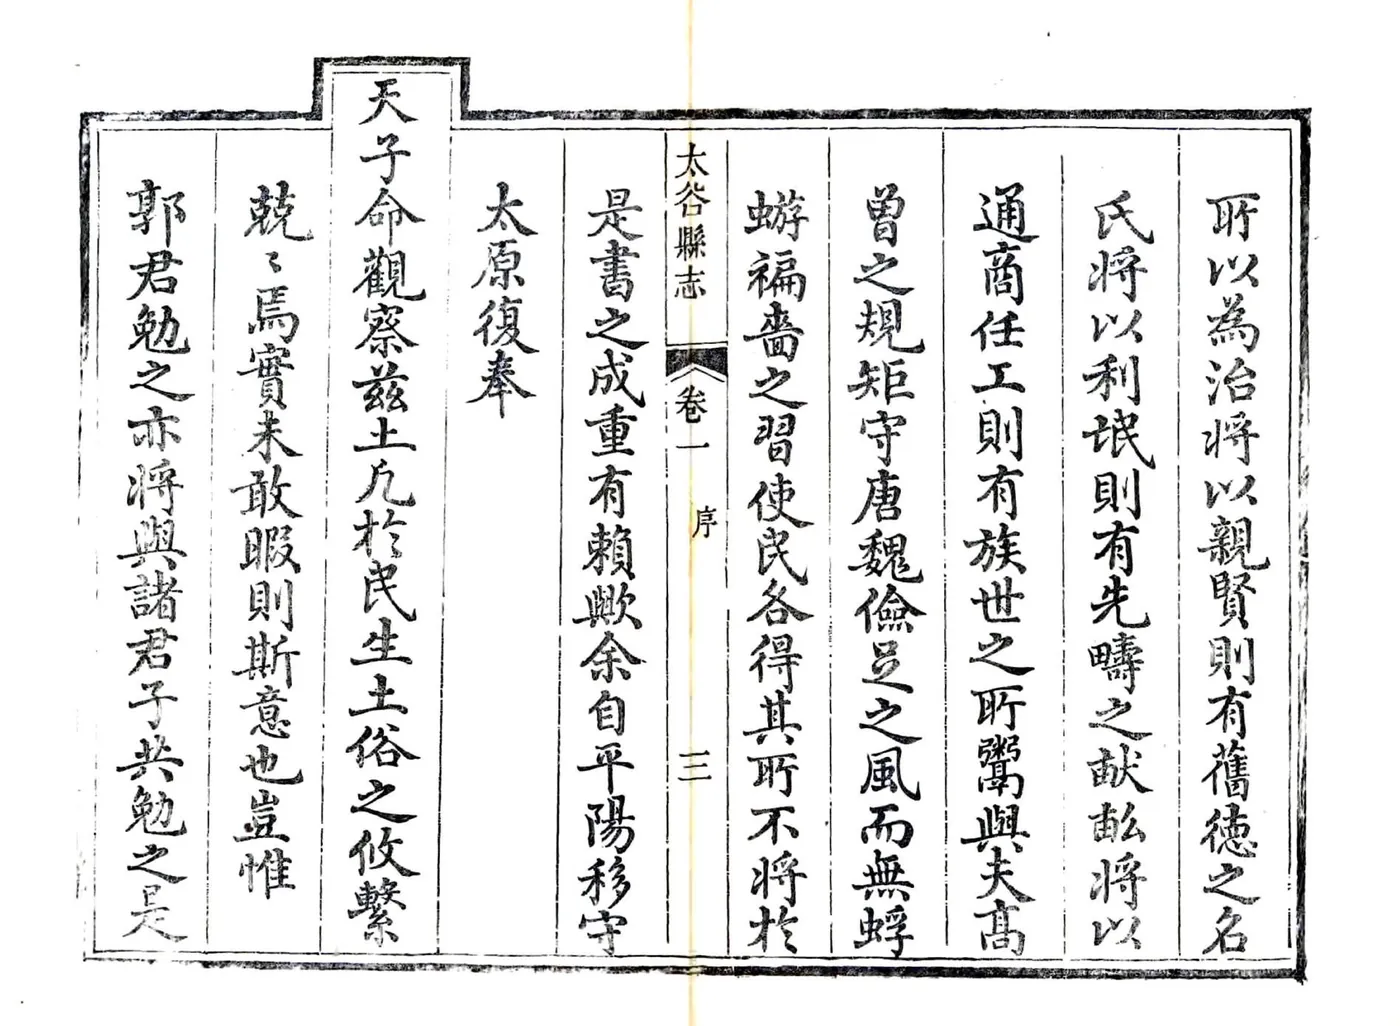 所以為治将以親賢則有舊徳之名
氏将以利氓則有先疇之畎畆将以
通商任工則有族世之所鬻與夫髙
曽之規矩守唐魏儉足之風而無蜉
蝣褊嗇之習使民各得其所不将於
太谷縣志 卷一 序 三
是書之成重有賴歟余自平陽移守
太原復奉
天子命觀察兹土凡於民生土俗之攸繫
兢〻焉實未敢暇則斯意也豈惟
郭君勉之亦将與諸君子共勉之是